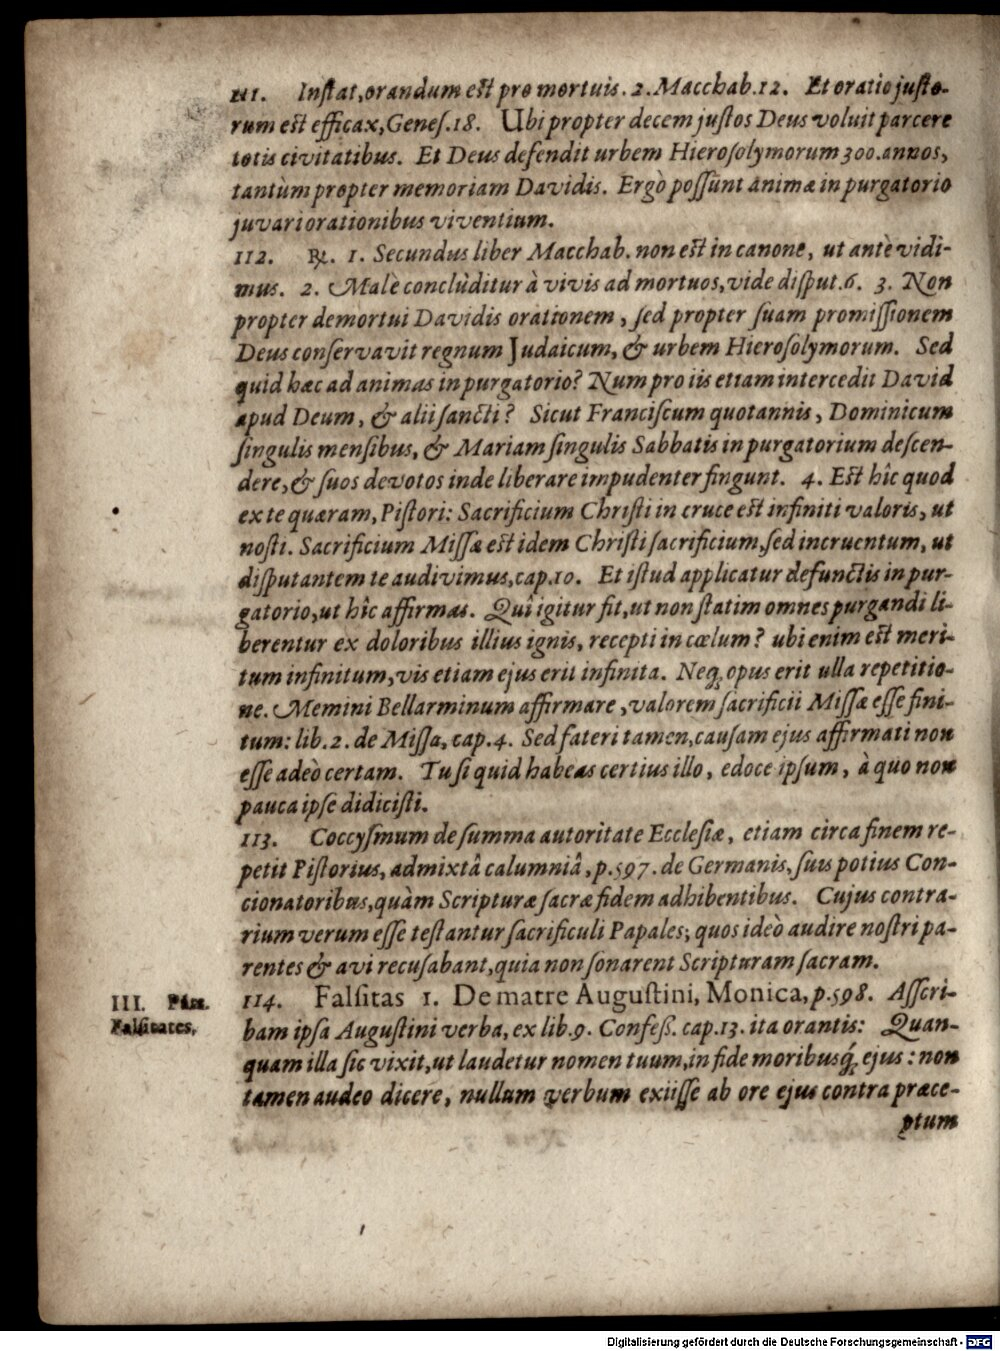 111. Inſtat, orandum eſt pro mortuis. 2. Macchab. 12. Et oratio juſto-
rum eſt efficax, Geneſ. 18. Ubi propter decem juſtos Deus voluit parcere
totis civitatibus. Et Deus defendit urbem Hieroſolymorum 300. annos,
tantùm propter memoriam Davidis. Ergò poſſunt animæ in purgatorio
juvari orationibus viventium.
112. ℞. 1. Secundus liber Macchab. non eſt in canone, ut antè vidi-
mus. 2. Malè conclùditur à vivis ad mortuos, vide diſput. 6. 3. Non
propter demortui Davidis orationem, ſed propter ſuam promiſſionem
Deus conſervavit regnum Judaicum, & urbem Hieroſolymorum. Sed
quid hæc ad animas in purgatorio? Num pro iis etiam intercedit David
apud Deum, & alii ſancti? Sicut Franciſcum quotannis, Dominicum
ſingulis menſibus, & Mariam ſingulis Sabbatis in purgatorium deſcen-
dere, & ſuos devotos inde liberare impudenter fingunt. 4. Eſt hîc quod
ex te quæram, Piſtori: Sacrificium Chriſti in cruce eſt infiniti valoris, ut
noſti. Sacrificium Miſſæ eſt idem Chriſti ſacrificium, ſed incruentum, ut
diſputantem te audivimus, cap. 10. Et iſtud applicatur defunctis in pur-
gatorio, ut hîc affirmas. Quî igitur fit, ut non ſtatim omnes purgandi li-
berentur ex doloribus illius ignis, recepti in cœlum? ubi enim eſt meri-
tum infinitum, vis etiam ejus erit infinita. Neq; opus erit ulla repetitio-
ne. Memini Bellarminum affirmare, valorem ſacrificii Miſſæ eſſe fini-
tum: lib. 2. de Miſſa, cap. 4. Sed fateri tamen, cauſam ejus affirmati non
eſſe adeò certam. Tu ſi quid habeas certius illo, edoce ipſum, à quo non
pauca ipſe didiciſti.
113. Coccyſmum de ſumma autoritate Eccleſiæ, etiam circa finem re-
petit Piſtorius, admixtâ calumniâ, p. 597. de Germanis, ſuis potius Con-
cionatoribus, quàm Scripturæ ſacræ fidem adhibentibus. Cujus contra-
rium verum eſſe teſtantur ſacrificuli Papales; quos ideò audire noſtri pa-
rentes & avi recuſabant, quia non ſonarent Scripturam ſacram.
III. Piſt.
Falſitates.
114. Falſitas 1. De matre Auguſtini, Monica, p. 598. Aſſcri-
bam ipſa Auguſtini verba, ex lib. 9. Confeß. cap. 13. ita orantis: Quan-
quam illa ſic vixit, ut laudetur nomen tuum, in fide moribusq́; ejus: non
tamen audeo dicere, nullum verbum exiiſſe ab ore ejus contra præce-
ptum
Digitalisierung gefördert durch die Deutsche Forschungsgemeinschaft - DFG